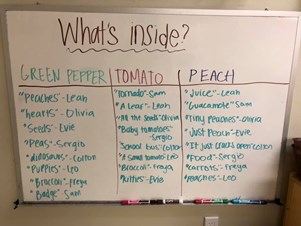 What's inside?
GREEN PEPPER
"Peaches" - Leah
"hearts" - Olivia
"Seeds" - Evie
"Peas" - Sergio
"dinosaurs" - Colton
"Puppies" - Leo
"Broccoli" - Freya
"Badge" - Sam
TOMATO
"Tornado" - Sam
"A Leaf" - Leah
"All the Seeds" Olivia
"Baby tomatoes" -
Sergio
"School bus" Colton
"A small tomato" Leo
"Broccoli" - Freya
"Kitties" - Evie
PEACH
"Juice" - Leah
"Guacamole" Sam
"Tiny peaches" - Olivia
"Just Peach" - Evie
"It just cracks open" Colton
"Food" - Sergio
"Carrots" - Freya
"Peaches" - Leo